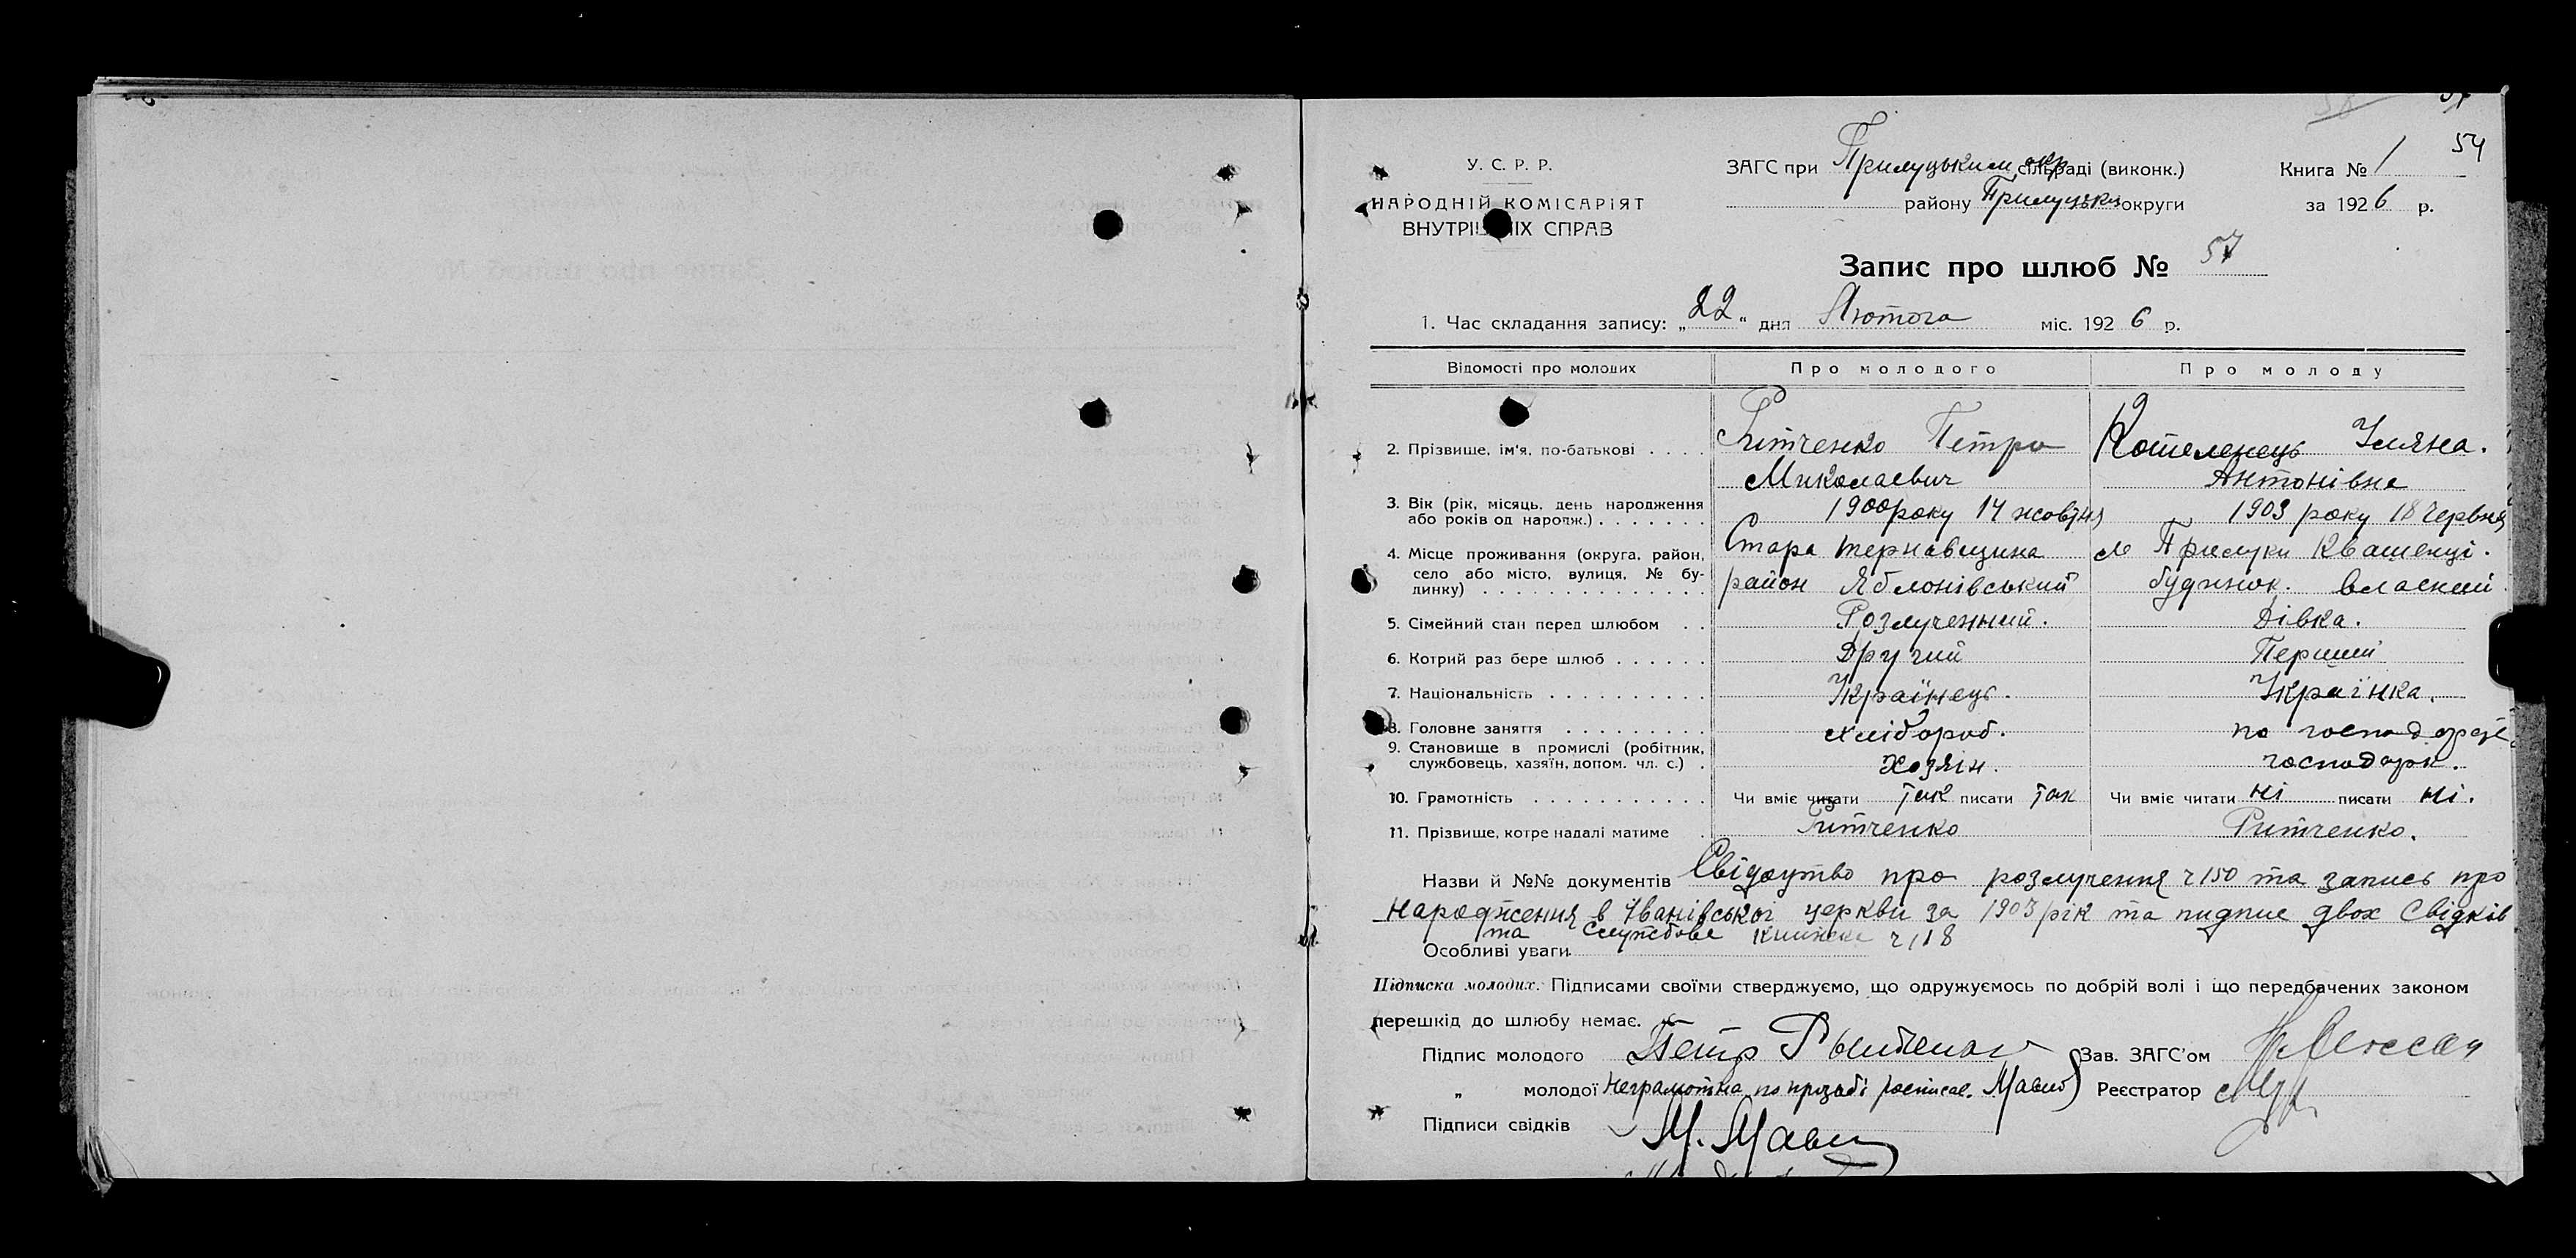 54
У. С. Р. Р.
НАРОДНІЙ КОМІСАРІЯТ
ВНУТРІШНІХ СПРАВ
ЗАГС при Прилуцьким окр сільраді (виконк.)
району Прилуцьки округи
Книга № 1
за 1926 р.
Запис про шлюб № 57
1. Час складання запису: „22“ дня Лютого міс. 1926 р.
Відомості про молодих
Про молодого
Про молоду
2. Прізвище, ім'я, по-батькові
Ритченко Петро
Миколаевич
Кошеленець Уляна.
Антонівна
3. Вік (рік, місяць, день народження
або років од народж.)
1900 року 14 жовтня
1903 року 18 Червня
4. Місце проживання (округа, район,
село або місто, вулиця, № бу-
динку)
Стара тернавщина
район Яблонівський
м Прилуки Квашенці.
будинок. власний
5. Сімейний стан перед шлюбом
Розлученний.
Дівка.
6. Котрий раз бере шлюб
Другий
Перший
7. Національність
Українець.
Українка.
8. Головне заняття
хлібороб.
по господарст
9. Становище в промислі (робітник,
службовець, хазяїн, допом. чл. с.)
Хозяін.
господарк.
10. Грамотність
Чи вміє читати так писати так
Чи вміє читати ні писати ні.
11. Прізвище, котре надалі матиме
Ритченко
Ритченко.
Назви й №№ документів Свідоцтво про розлучення ч 150 та запись про
народження в Іванівської церкви за 1903 рік та пидпис двох Свідків
та Службова книжка ч 118
Особливі уваги
Підписка молодих. Підписами своїми стверджуємо, що одружуємось по добрій волі і що передбачених законом
перешкід до шлюбу немає.
Підпис молодого Петр Рытченко
Зав. ЗАГС'ом
„ молодої Неграмотна по прозьбі росписал.
Реєстратор
Підписи свідків